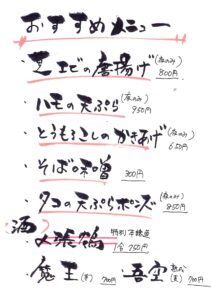 おすすめメニュー
・芝エビの唐揚げ(夜のみ) 800円
・ハモの天ぷら(夜のみ) 950円
・とうもろこしのかきあげ(夜のみ) 650円
・そばの味噌 300円
・タコの天ぷらポンズ(夜のみ) 850円
(酒)
〆張鶴 特別本醸造 1合 750円
・魔王(芋) 700円 ・吾空 (麦) 700円